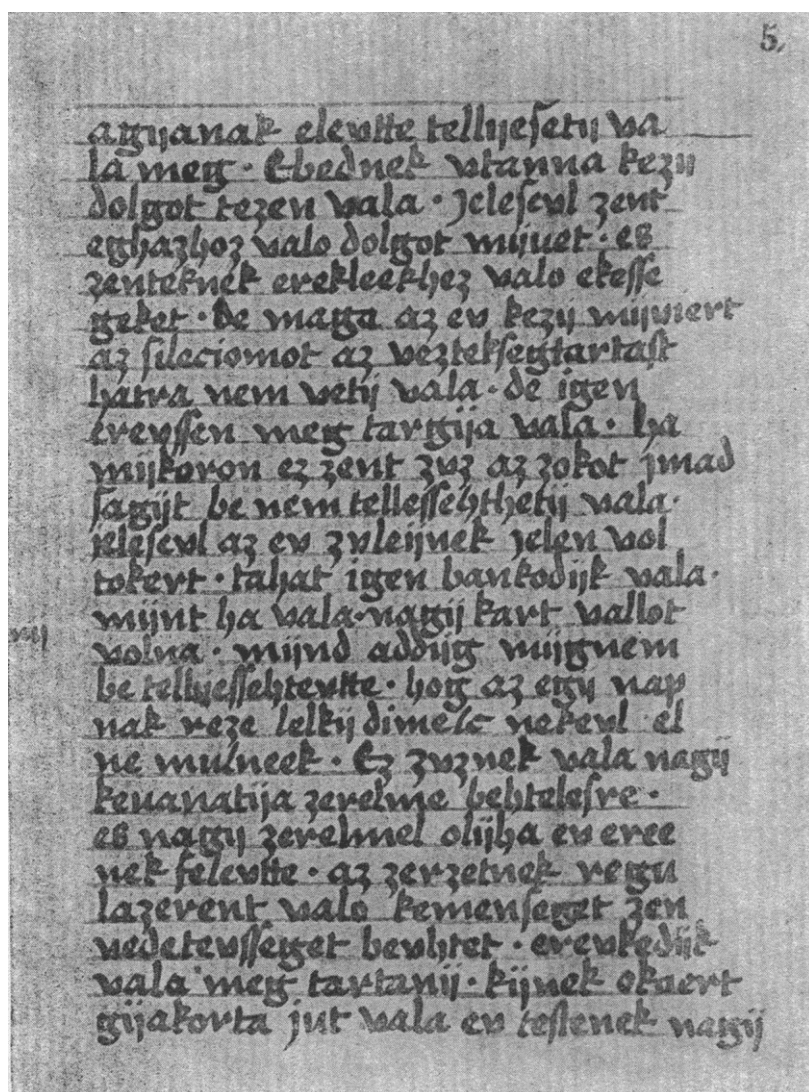 5.
agijanak elevtte tellyesetij va
la meg · Ebednek vtanna kezij
dolgot tezen vala · jelesevl zent
eghazhoz valo dolgot mijuet · es
zenteknek erekleekhez valo ekesse
geket · De maga az ev kezij mijviert
az sileciomot az vezteksegtartast
hatra nem vetij vala · de igen
erevssen meg targija vala · ha
mijkoron ez zent zvz az zokot jmad
sagijt be nem tellessehthetij vala ·
jelesevl az ev zvleijnek jelen vol
tokert · tahat igen bankodijk vala ·
mijnt ha vala · nagij kart vallot
volna · mijnd addijg mijgnem
be tellyessehtevtte · hog az egij nap
nak reze lelkij dimelc nekevl el
ne mulneek · Ez zvznek vala nagij
keuanatija zerelme behtelesre ·
es nagij zerelmel olijha ev eree
nek felevtte · az zerzetnek regu
lazerent valo kemenseget zen
vedetevsseget bevhtet · erevkedijk
vala meg tartanij · kijnek okaert
gijakorta jut vala ev testenek nagij
nij